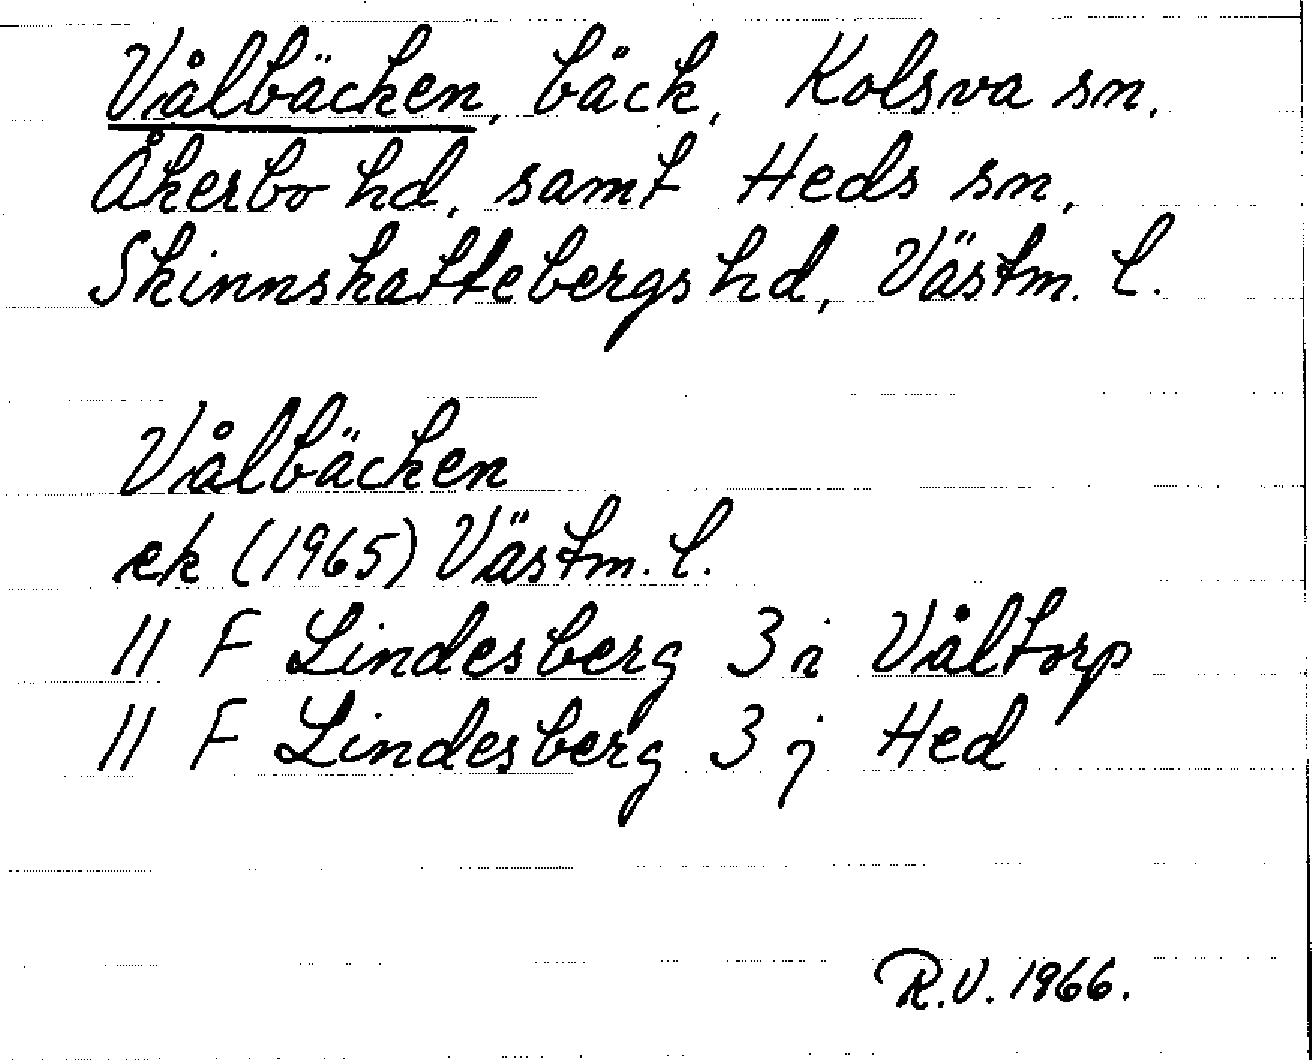 Vålbäcken, bäck, Kolsva sn,
Åkerbo hd, samt Heds sn,
Skinnskattebergs hd, Västm. l.
Vålbäcken
ek (1965) Västm. l.
11 F Lindesberg 3 i Våltorp
11 F Lindesberg 3 j Hed
R.V. 1966.